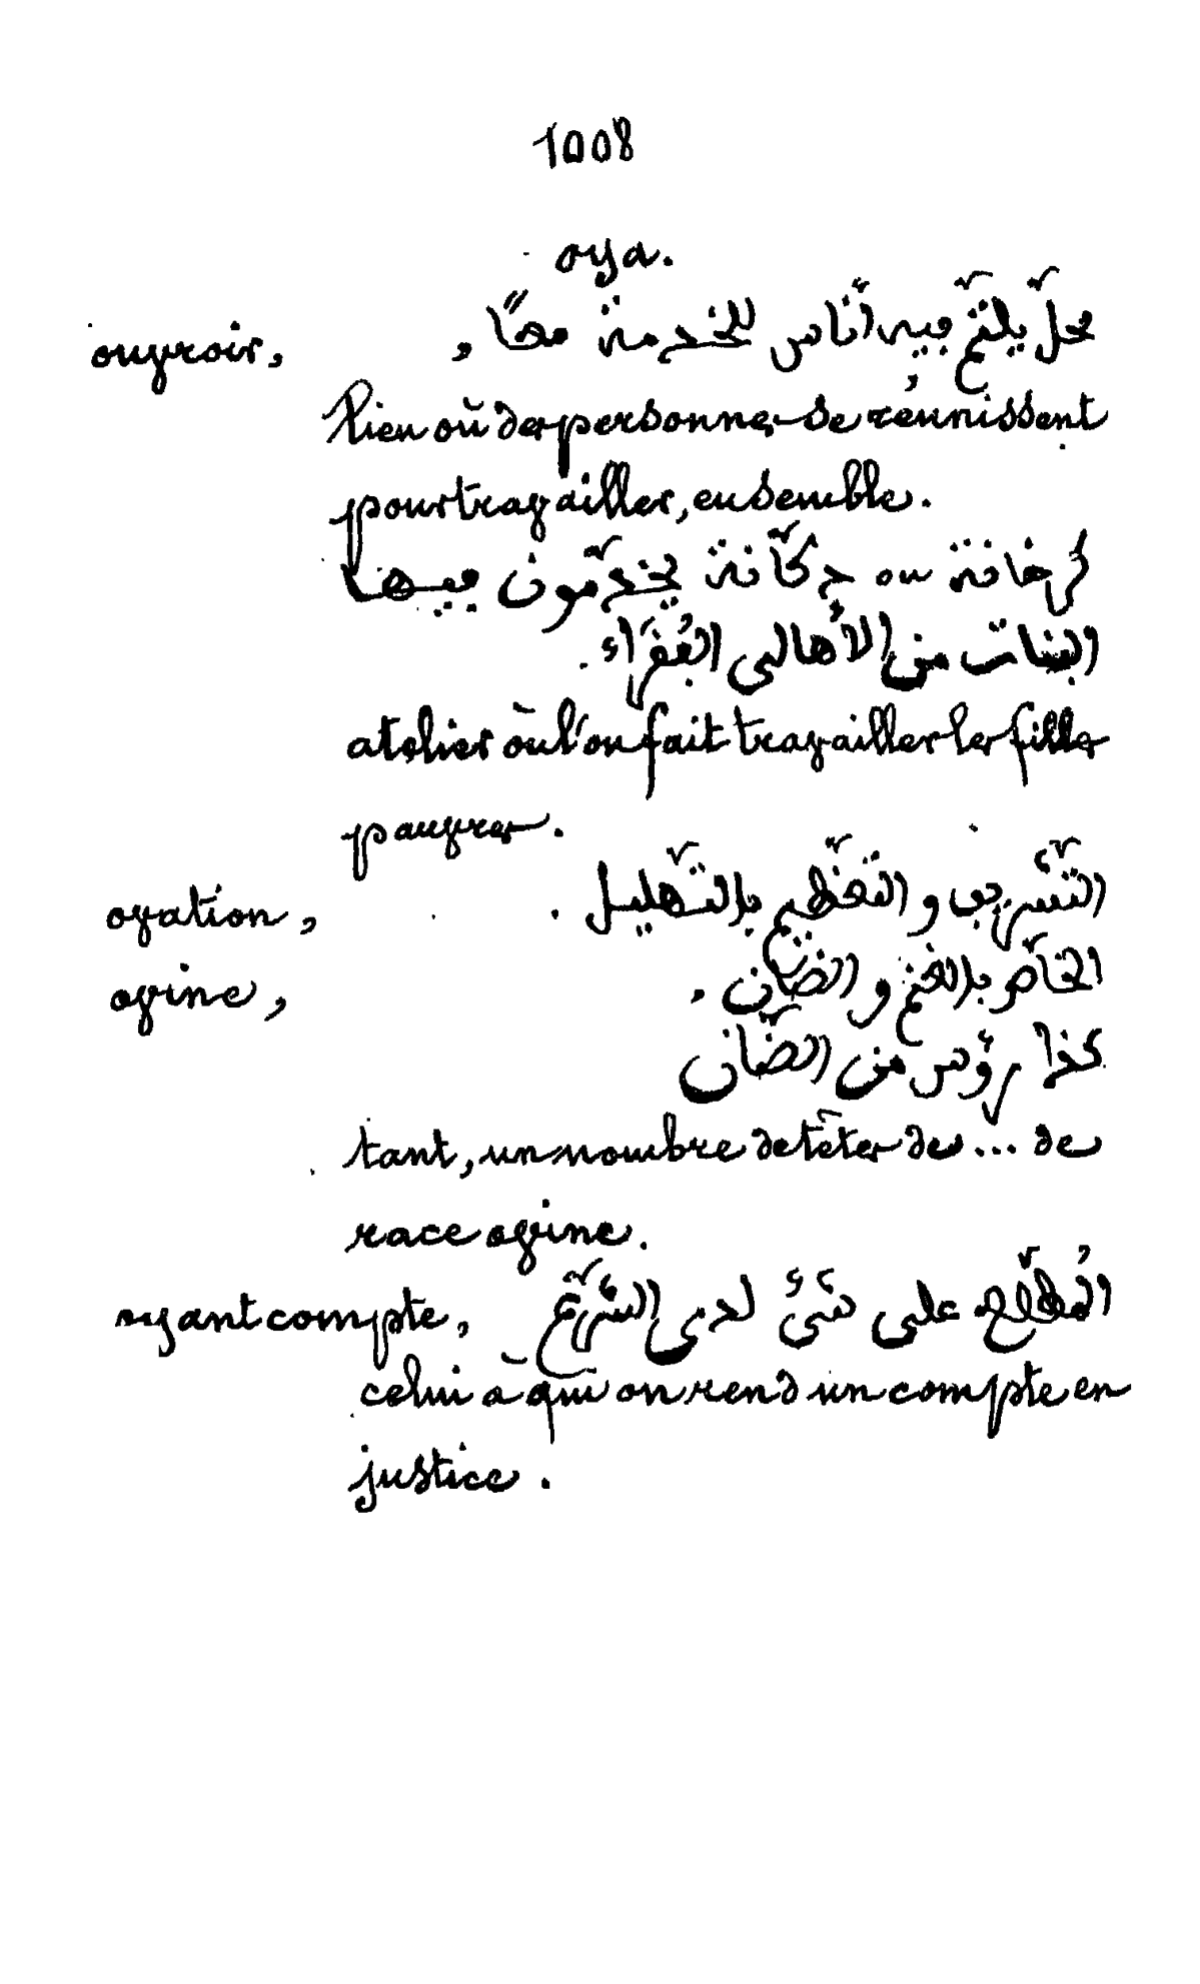 1008
oya.
ouvroir, محلّ يلتمّ فيه أناس للخدمة معًا,
lieu où des personnes se réunissent
pour travailler, ensemble.
كرخانة ou دكّانة يخدّمون فيها
البنات من الأهالي الفُقَرَاء.
atelier où l'on fait travailler les filles
pauvres.
ovation, التّشريف و التعظيم بالتّهليل.
ovine, الخاصّ بالغنم و الضّان.
كذا رؤس من الضّان
tant, un nombre de têtes de ... de
race ovine.
oyant compte, المُطّلع على شيْءٍ لدى الشّرع
celui à qui on rend un compte en
justice.